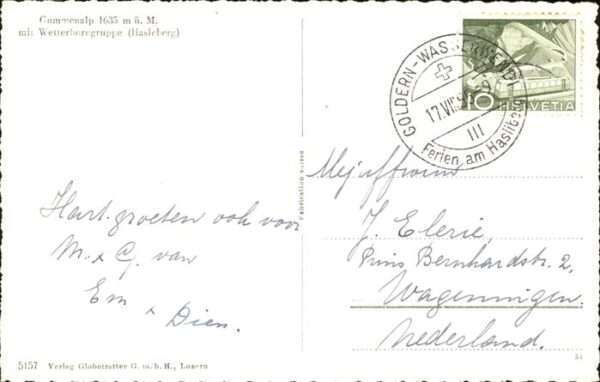 Gummenalp 1635 m ü. M.
mit Wetterhorngruppe (Hasleberg)
GOLDERN-WASSERWENDI
17.VII.5
III
Ferien am Haslib
10 HELVETIA
Fabrication suisse
Hart. groeten ook voor
M. & G. van
Em & Dien.
Mejuffrouw
J. Elerie,
Prins Bernhardstr. 2,
Wageningen.
Nederland.
5157 Verlag Globetrotter G. m. b. H., Luzern